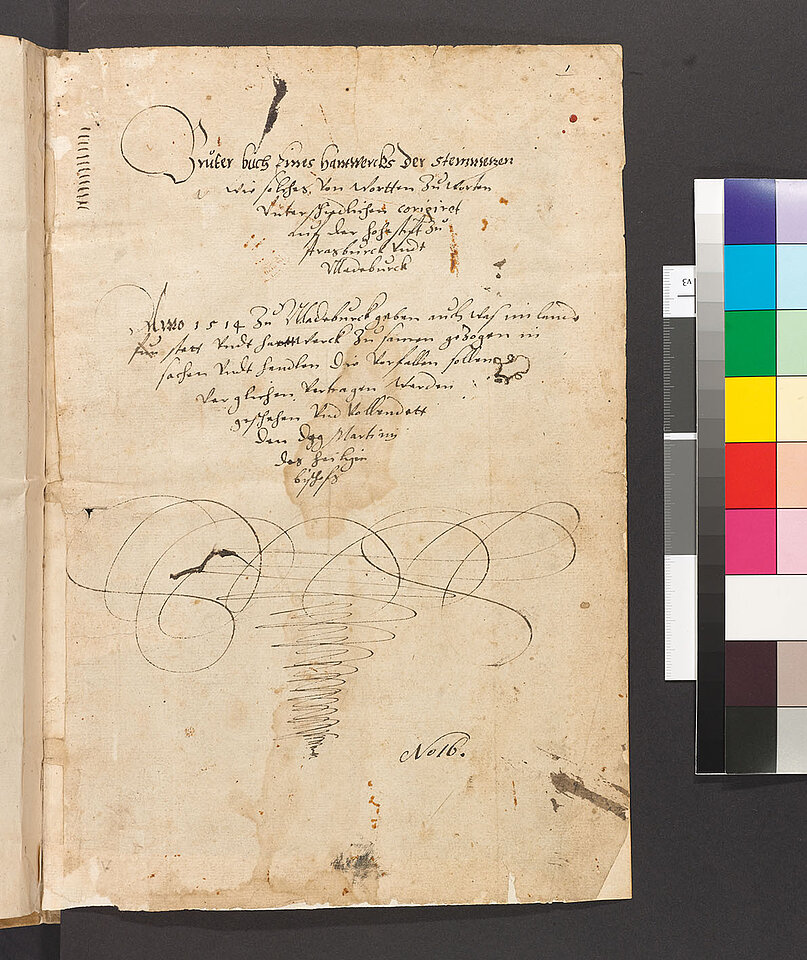 1
Bruter buch eines hantwercks der steinmetzen
wie solches von wortten zu worten
unterschiedlichen corigiret
auf der hohe stift zu
strasburck undt
Madeburck
Anno 1514 Zu Madeburck geben auch was im lande
stett undt hantwerck zu samen gezogen in
sachen undt handlen die vorfallen sollen
verglichen vertragen werden
geschehen und vollendett
den dag Martini
des heiligin
bischofs
No 16.
v3